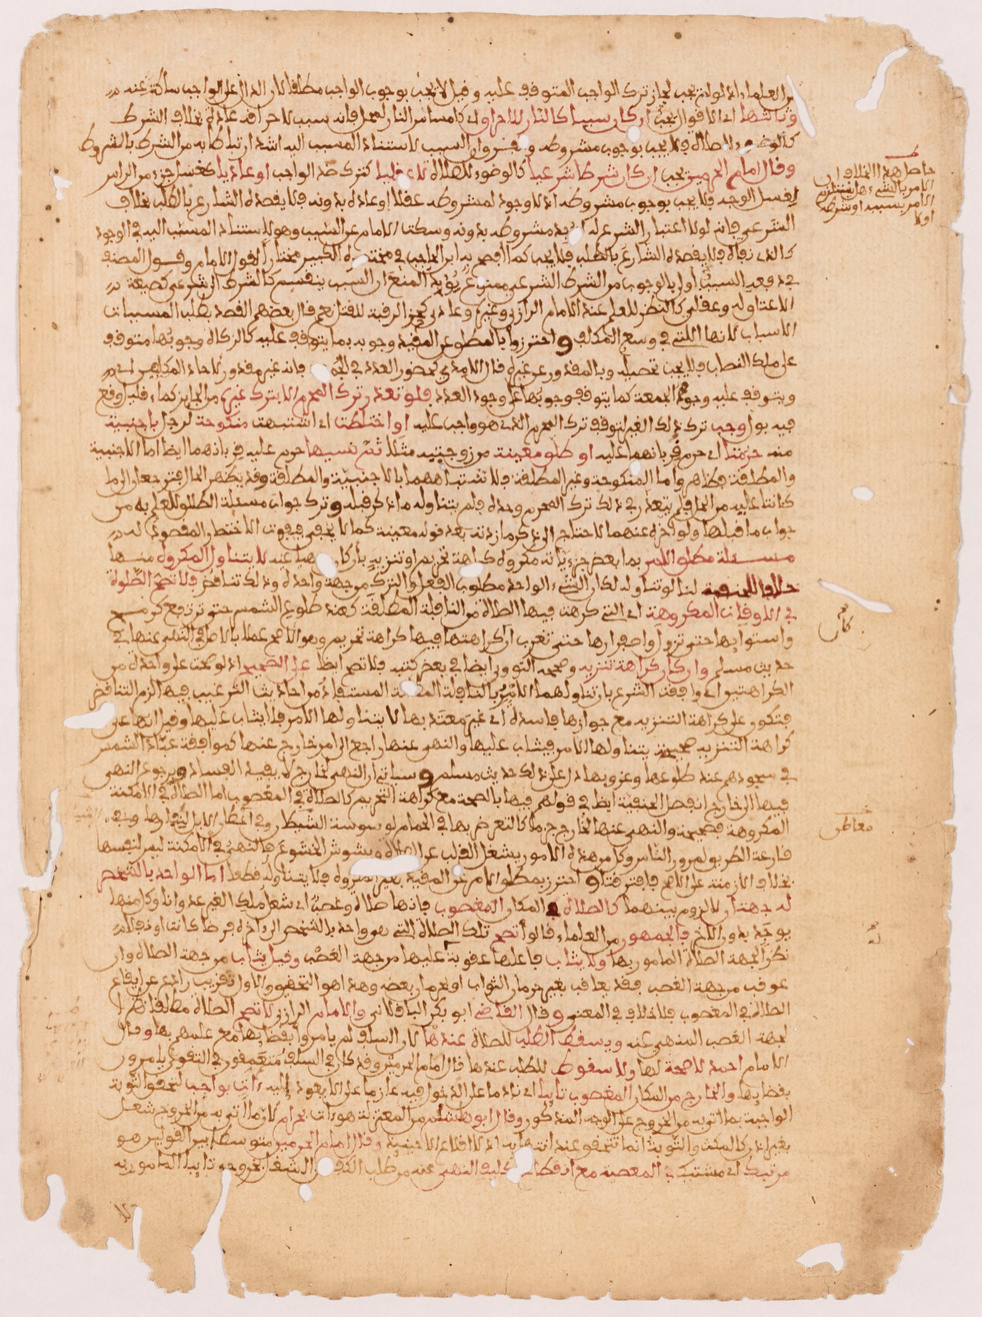 من العلماء اذ لو لم يجب لجاز ترك الواجب المتوقف عليه وقيل لا يجب بوجوب الواجب مطلقا لان الدال على الواجب ساكت عنه
وثالثها اي الاقوال يجب ان كان سببا كالنار للاحراق اي كامساس النار لمحل فانه سبب لاحراقه عادة بخلاف الشرط
كالوضوء للصلاة فلا يجب بوجوب مشروطه والفرق ان السبب لاستناد المسبب اليه اشد ارتباطا به من الشرط بالمشروط
وقال امام الحرمين يجب ان كان شرطا شرعيا كالوضوء للصلاة لا عقليا كترك ضد الواجب او عاديا كغسل جزء من الراس
لغسل الوجه فلا يجب بوجوب مشروطه اذ لا وجود لمشروطه عقلا او عادة بدونه فلا يقصده الشارع بالطلب بخلاف
الشرعي فانه لولا اعتبار الشرع له لوجد مشروطه بدونه وسكت الامام عن السبب وهو لاستناد المسبب اليه في الوجود
كالذي نفاه فلا يقصده الشارع بالطلب فلا يجب كما افصح به ابن الحاجب في مختصره الكبير مختارا لقول الامام وقول المصنف
في دفعه السبب اولى بالوجوب من الشرط الشرعي ممنوع يؤيد المنع ان السبب ينقسم كالشرط الى شرعي كصيغة
الاعتاق له وعقلي كالنظر للعلم عند الامام الرازي وغيره وعادي كحز الرقبة للقتل نعم قال بعضهم القصد بطلب المسببات
الاسباب لانها التي في وسع المكلف واحترزوا بالمطلق عن المقيد وجوبه بما يتوقف عليه كالزكاة وجوبها متوقف
على ملك النصاب فلا يجب تحصيله وبالمقدور عن غيره قال الامدي كحضور العدد في الجمعة فانه غير مقدور لاحاد المكلفين اي
ويتوقف عليه وجود الجمعة كما يتوقف وجوبها على وجود العدد فلو تعذر ترك المحرم الا بترك غيره من الجائز كماء قليل وقع
فيه بول وجب ترك ذلك الغير لتوقف ترك المحرم الذي هو واجب عليه او اختلطت اي اشتبهت منكوحة لرجل باجنبية
منه حرمتا اي حرم قربانهما عليه او طلق معينة من زوجتيه مثلا ثم نسيها حرم عليه قربانهما ايضا اما الاجنبية
والمطلقة فظاهر واما المنكوحة وغير المطلقة فلاشتباههما بالاجنبية والمطلقة وقد يظهر الحال فترجعان الى ما
كانتا عليه من الحل فلم يتعذر في ذلك ترك المحرم وحده فلم يتناوله ما ذكر قبله وترك جواب مسئلة الطلاق للعلم به من
جواب ما قبلها ولو اخره عنهما لاحتاج الى ذكر ما زدته بعد قوله معينة كما لا يخفى فيفوت الاختصار المقصود له
مسئلة مطلق الامر بما بعض جزئياته مكروه كراهة تحريم او تنزيه بان كان منهيا عنه لا يتناول المكروه منها
خلافا للحنفية لنا لو تناوله لكان الشيء الواحد مطلوب الفعل والترك من جهة واحدة وذلك تناقض فلا تصح الصلوة
في الاوقات المكروهة اي التي كرهت فيها الصلاة من النافلة المطلقة كعند طلوع الشمس حتى ترتفع كرمح
واستوايها حتى تزول واصفرارها حتى تغرب ان كان كراهتها فيها كراهة تحريم وهو الاصح عملا بالاصل في النهي عنها في
حديث مسلم وان كان كراهة تنزيه وصححه النووي ايضا في بعض كتبه فلا تصح ايضا على الصحيح اذ لو صحت على واحدة من
الكراهتين اي وافقت الشرع بان تناولها الامر بالنافلة المطلقة المستفاد من احاديث الترغيب فيها لزم التناقض
فتكون على كراهة التنزيه مع جوازها فاسدة اي غير معتد بها لا يتناولها الامر فلا يثاب عليها وقيل انها على
كراهة التنزيه صحيحة يتناولها الامر فيثاب عليها والنهي عنها راجع الى امر خارج عنها كموافقة عباد الشمس
في سجودهم عند طلوعها وغروبها دل على ذلك حديث مسلم وسياتي ان النهي لخارج لا يفيد الفساد وبرجوع النهي
فيها الى خارج انفصل الحنفية ايضا في قولهم فيها بالصحة مع كراهة التحريم كالصلاة في المغصوب اما الصلاة في الامكنة
المكروهة فصحيحة والنهي عنها لخارج جزما كالتعرض بها في الحمام لوسوسة الشيطان وفي اعطان الابل لنفارها وفي
قارعة الطريق لمرور الناس وكل من هذه الامور يشغل القلب عن الصلاة ويشوش الخشوع فالنهي في الامكنة ليس لنفسها
بخلاف الازمنة على الاصح فافترقتا واحترز بمطلق الامر عن المقيد بغير المكروه فلا يتناوله قطعا اما الواحد بالشخص
له جهتان لا لزوم بينهما كالصلاة في المكان المغصوب فانها صلاة وغصب اي شغل ملك الغير عدوانا وكل منهما
يوجد بدون الاخر فالجمهور من العلماء قالوا تصح تلك الصلاة التي هي واحد بالشخص الى اخره فرضا كانت او نفلا
نظرا لجهة الصلاة المامور بها ولا يثاب فاعلها عقوبة له عليها من جهة الغصب وقيل يثاب من جهة الصلاة وان
عوقب من جهة الغصب فقد يعاقب بغير حرمان الثواب او بحرمان بعضه وهذا هو التحقيق والاول تقريب رادع عن ايقاع
الصلاة في المغصوب فلا خلاف في المعنى وقال القاضي ابو بكر الباقلاني والامام الرازي لا تصح الصلاة مطلقا نظرا
لجهة الغصب المنهي عنه ويسقط الطلب للصلاة عندها لان السلف لم يامروا بقضائها مع علمهم بها وقال
الامام احمد لا صحة لها ولا سقوط للطلب عندها قال امام الحرمين وقد كان في السلف متعمقون في التقوى يامرون
بقضايها والخارج من المكان المغصوب تايبا اي نادما على الدخول فيه عازما على ان لا يعود اليه ءات بواجب لتحقق التوبة
الواجبة بما اتى به من الخروج على الوجه المذكور وقال ابو هاشم من المعتزلة هو ءات بحرام لان ما اتى به من الخروج شغل
بغير اذن كالمكث والتوبة انما تتحقق عند انتهايه اذ لا اقلاع الا حينئذ وقال امام الحرمين متوسطا بين القولين هو
مرتبك اي مشتبك في المعصية مع انقطاع تكليف النهي عنه من طلب الكف عن الشغل بخروجه تايبا المامور به
حاصل هذا الخلاف ان
الامر بالشيء هل يقتضي
الامر بسببه او شرطه
او لا